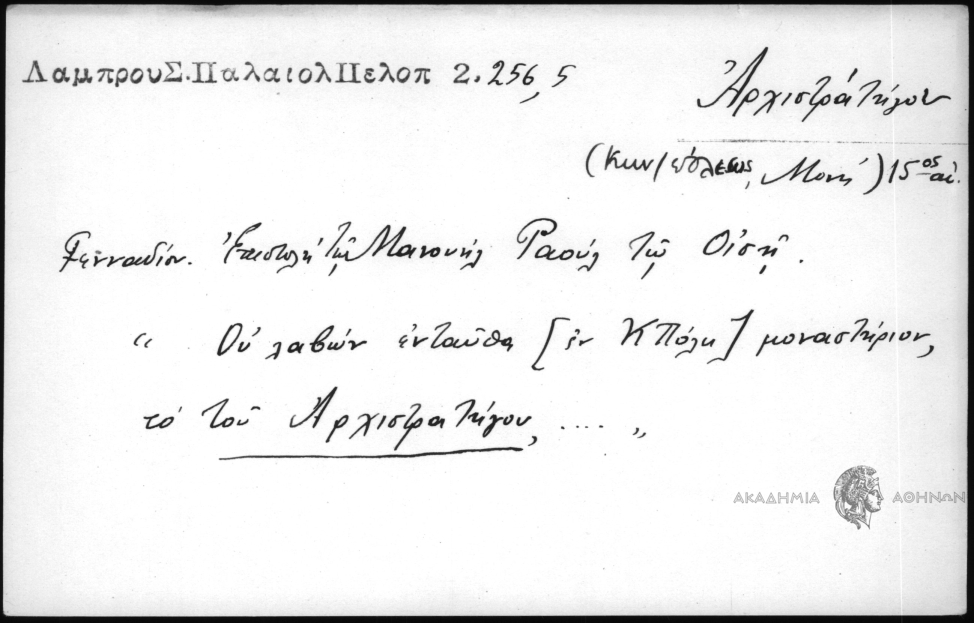 ΛαμπρουΣ.ΠαλαιολΠελοπ 2.256,5
Ἀρχιστράτήγου
(Κων/πόλεως, Μονή) 15ος αἰ.
Γενναδίου. Ἐπιστολή τῷ Μανουήλ Ραούλ τῷ Οἰσῇ.
“ Οὐ λαβών ἐνταῦθα [ἐν ΚΠόλει] μοναστήριον,
τό τοῦ Ἀρχιστρατήγου, .... „
ΑΚΑΔΗΜΙΑ ΑΘΗΝΩΝ